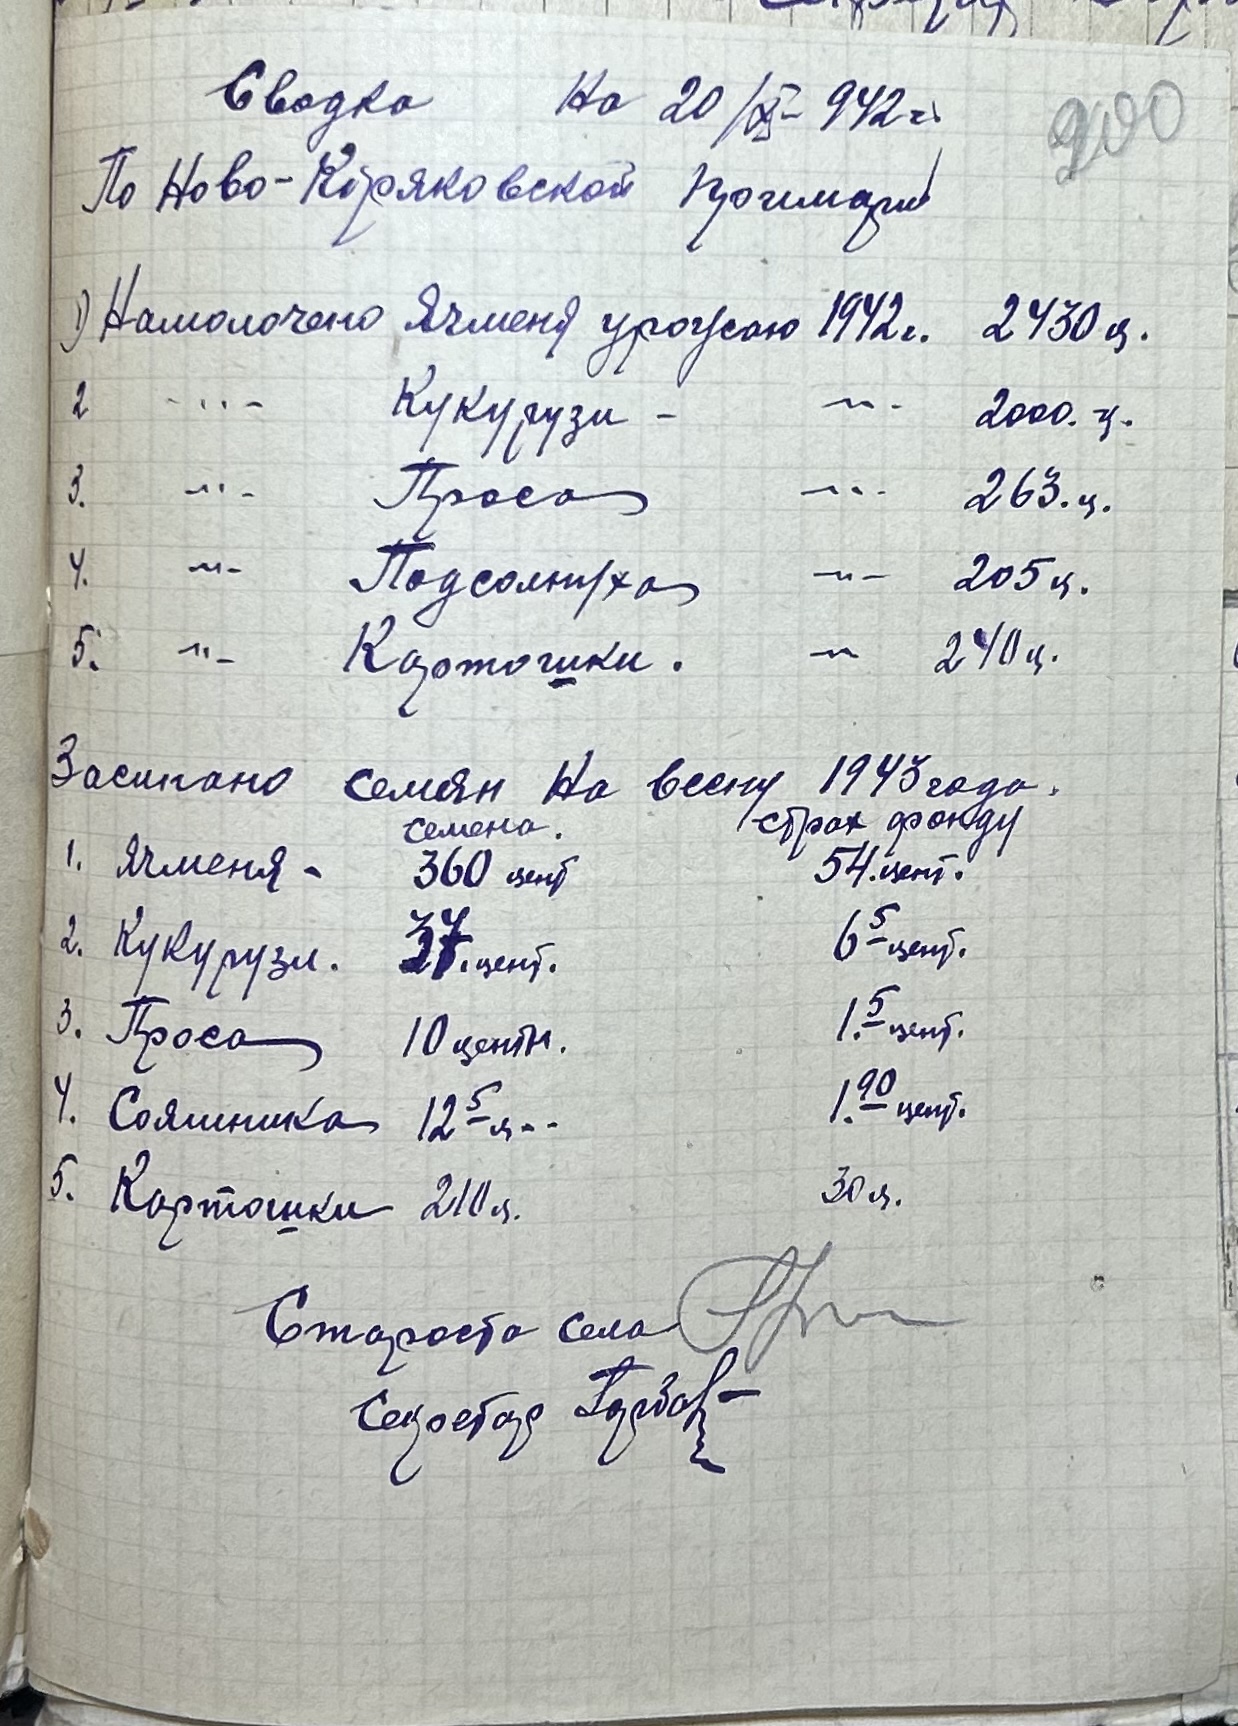 Сводка На 20/XI- 942 г.
200
По Ново-Коряковской Прогимарии
1) Намолочено Ячменя урожаю 1942 г. 2430 ц.
2 -"- Кукурузи - -"- 2000. ц.
3. -"- Проса -"- 263. ц.
4. -"- Подсолнуха -"- 205 ц.
5. -"- Картошки. -"- 240 ц.
Засипано семян На весну 1943 года.
семена. страх фонду
1. Ячменя - 360 цент 54. цент.
2. Кукурузи. 37. цент. 6 5 цент.
3. Проса 10 центн. 1. 5 цент.
4. Сояшника 12 5 ц.. 1. 90 цент.
5. Картошки 210 ц. 30 ц.
Староста села
Секретар